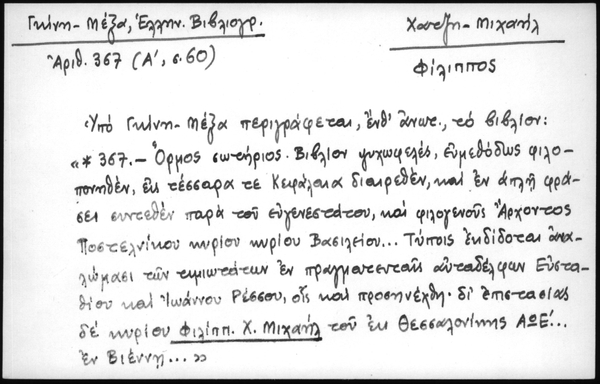 Γκίνη - Μέξα, Ἑλλην. Βιβλιογρ.
Χατζη - Μιχαήλ
Ἀριθ. 367 (Α', σ. 60)
Φίλιππος
Ὑπό Γκίνη - Μέξα περιγράφεται, ἔνθ' ἄνωτ., τό βιβλίον:
«* 367. - Ὅρμος σωτήριος. Βιβλίον ψυχωφελές, εὐμεθόδως φιλο-
πονηθέν, εἰς τέσσαρα τε κεφάλαια διαιρεθέν, καί ἐν ἁπλῇ φρά-
σει συντεθέν παρά τοῦ εὐγενεστάτου, καί φιλογενοῦς Ἄρχοντος
Ποστελνίκου κυρίου κυρίου Βασιλείου... Τύποις ἐκδίδοται ἀνα-
λώμασι τῶν τιμιωτάτων ἐν πραγματευταῖς αὐταδέλφων Εὐστα-
θίου καί Ἰωάννου Ρέσσου, οἷς καί προσηνέχθη· δι' ἐπιστασίας
δέ κυρίου Φιλίππ. Χ. Μιχαήλ τοῦ ἐκ Θεσσαλονίκης ΑΩΕ'...
ἐν Βιέννῃ... »